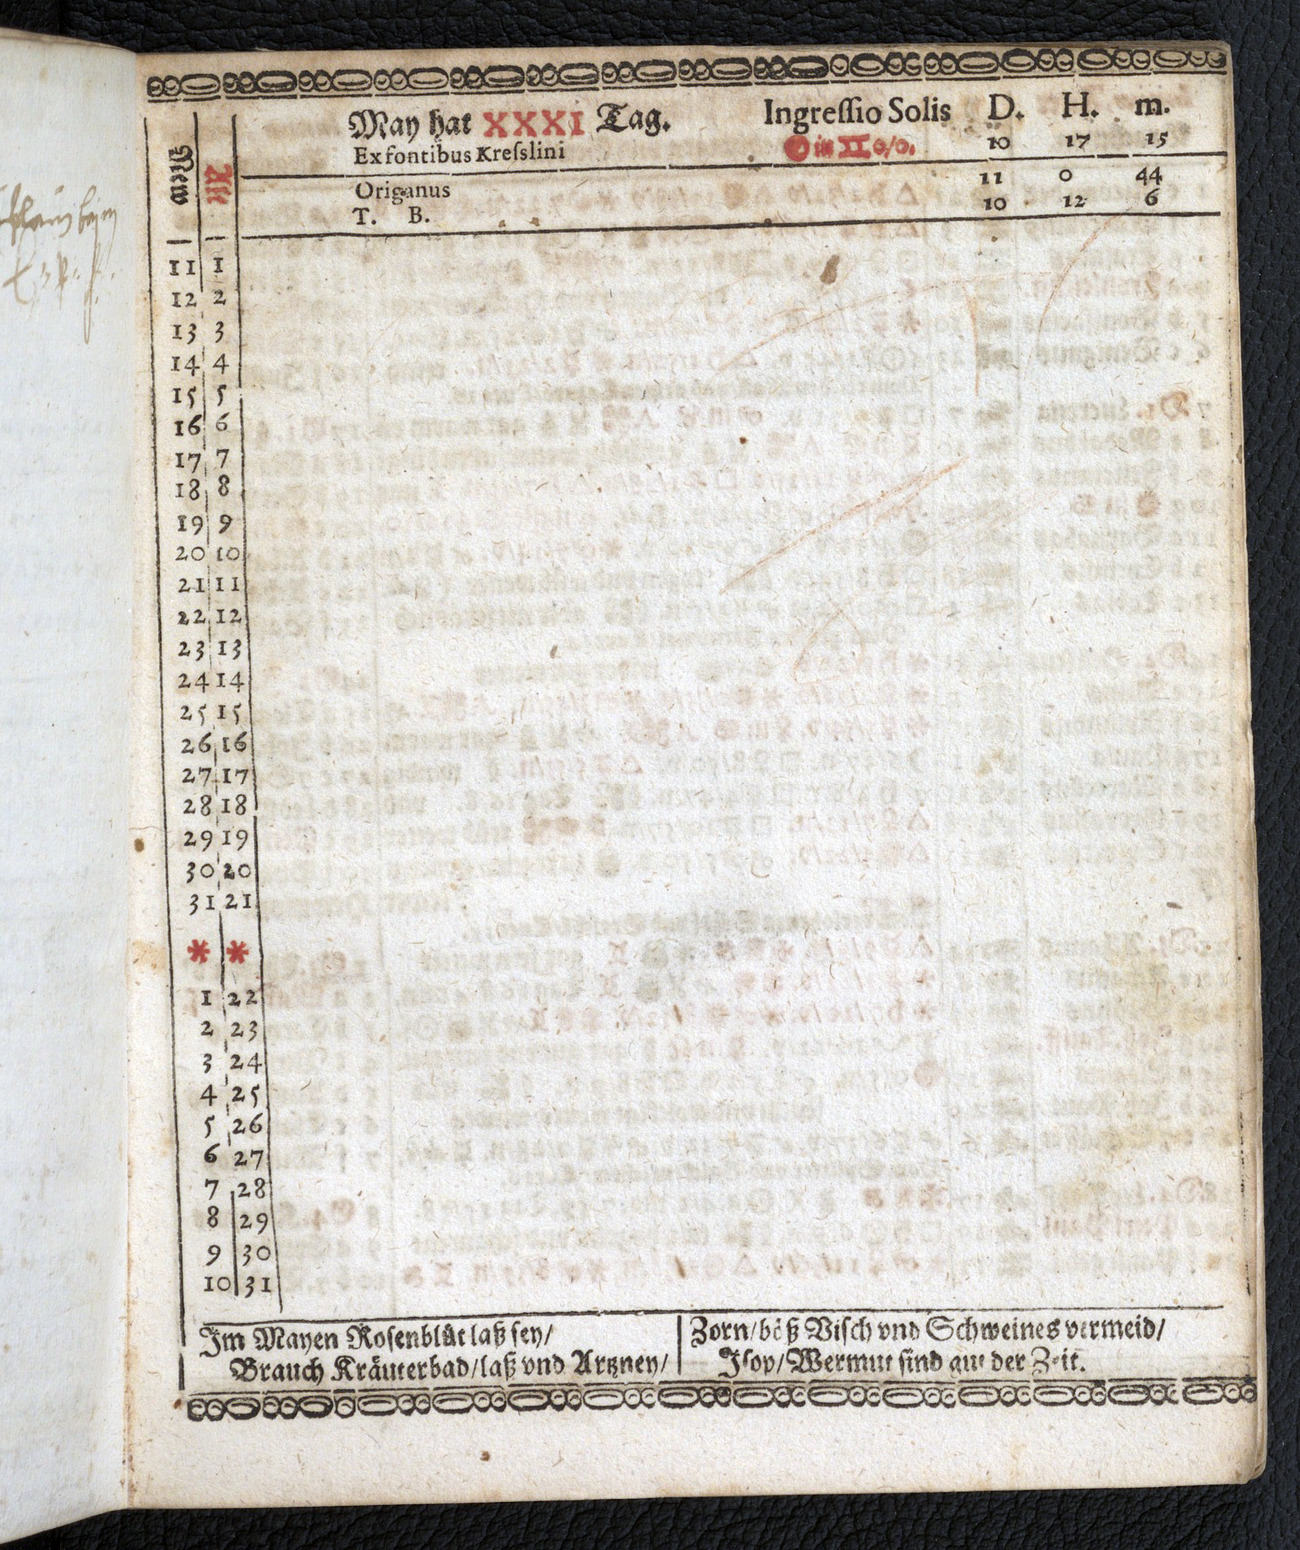 May hat XXXI Tag. Ingressio Solis D. H. m.
Ex fontibus Kresslini ☉ in ♊ 0/0. 10 17 15
Origanus 11 0 44
T. B. 10 12 6
New Alt
11 1
12 2
13 3
14 4
15 5
16 6
17 7
18 8
19 9
20 10
21 11
22 12
23 13
24 14
25 15
26 16
27 17
28 18
29 19
30 20
31 21
* *
1 22
2 23
3 24
4 25
5 26
6 27
7 28
8 29
9 30
10 31
Im Mayen Rosenblüt laß sey/
Brauch Kräuterbad/laß vnd Artzney/
Zorn/böß Visch vnd Schweines vermeid/
Isop/Wermut sind gut der Zeit.